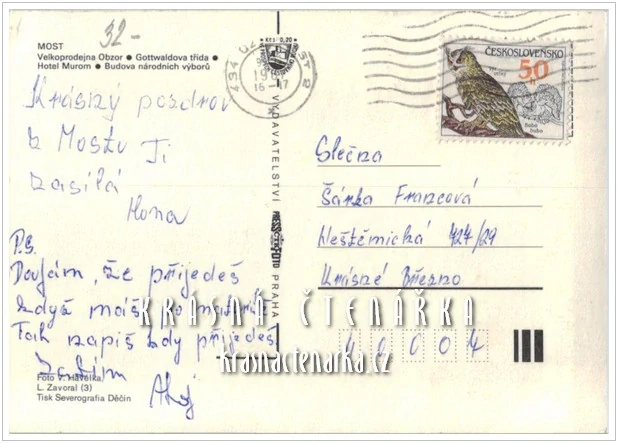 32-
MOST
Velkoprodejna Obzor • Gottwaldova třída •
Hotel Murom • Budova národních výborů
Krásný pozdrav
z Mostu Ti
zasílá
Ilona
P.S.
Doufám, že přijedeš
když máš po maturitě
Tak napiš kdy přijedeš.
Zatím
Ahoj
Foto V. Havelka,
L. Zavoral (3)
Tisk Severografia Děčín
Kčs 0,20
VYDAVATELSTVÍ
PRESSFOTO
PRAHA
434
16-17
ČESKOSLOVENSKO
50
h
Výr velký
Bubo bubo
Slečna
Šárka Francová
Neštěmická 427/29
Krásné Březno
40004
KRÁSNÁ ČTENÁŘKA
krasnactenarka.cz